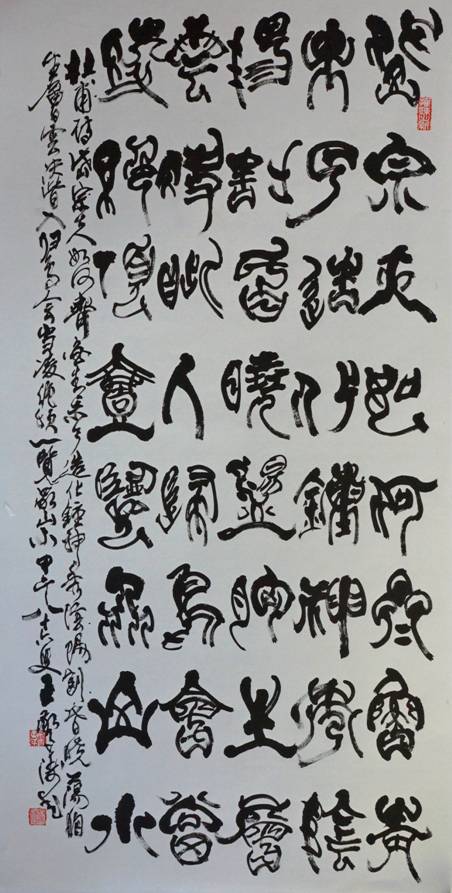 岱宗夫如何齊魯青
未了造化鍾神秀陰
陽割昏曉盪胸生層
雲決眦入歸鳥會當
凌絕頂壹覽眾山小
杜甫詩岱宗夫如何齊魯青未了造化鍾神秀陰陽割昏曉蕩胸
生層雲決眥入歸鳥會當凌絕頂一覽眾山小甲午八十六叟王